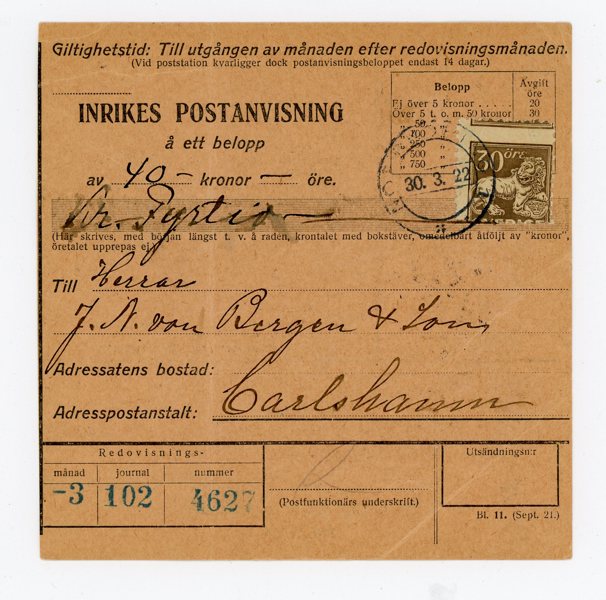 Giltighetstid: Till utgången av månaden efter redovisningsmånaden.
(Vid poststation kvarligger dock postanvisningsbeloppet endast 14 dagar.)
INRIKES POSTANVISNING
å ett belopp
av 40 — kronor — öre.
Belopp
Avgift öre
Ej över 5 kronor . . . . . 20
Över 5 t. o. m. 50 kronor 30
„ 50
„ 100
„ 250
„ 500
„ 750
30 öre
30. 3. 22
Kr. Fyrtio —
(Här skrives, med början längst t. v. å raden, krontalet med bokstäver, omedelbart åtföljt av "kronor",
öretalet upprepas ej.)
Till Herrar
J. N. von Bergen & Son,
Adressatens bostad:
Adresspostanstalt: Carlshamn
Redovisnings-
månad journal nummer
-3 102 4627
(Postfunktionärs underskrift.)
Utsändningsn:r
Bl. 11. (Sept. 21.)